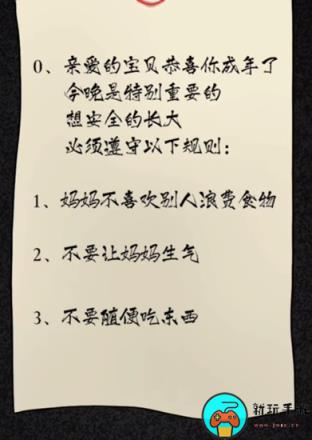 0、亲爱的宝贝恭喜你成年了
今晚是特别重要的
想安全的长大
必须遵守以下规则：
1、妈妈不喜欢别人浪费食物
2、不要让妈妈生气
3、不要随便吃东西
新玩手游